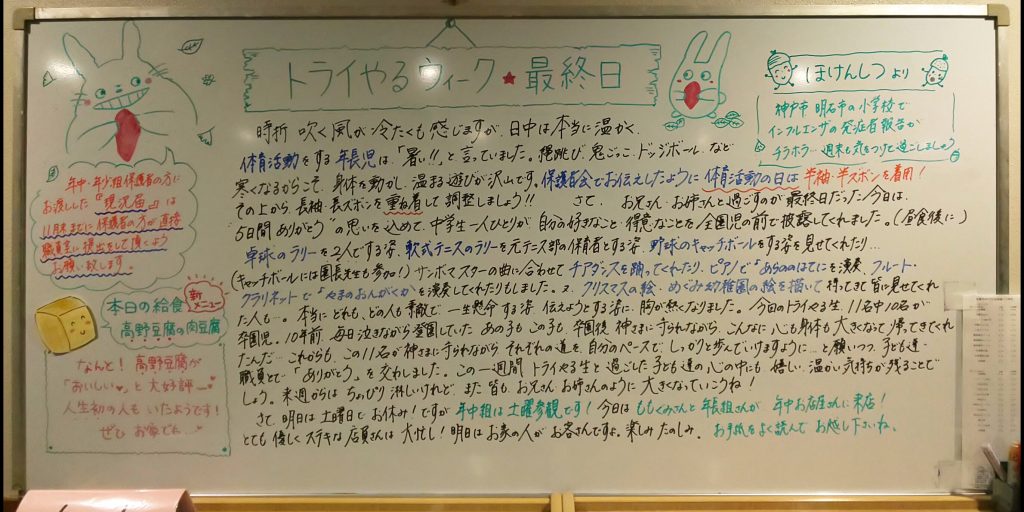 トライやるウィーク★最終日
時折 吹く風が冷たくも感じますが、日中は本当に温かく、
体育活動をする年長児は、「暑い!!」と言っていました。縄跳び、鬼ごっこ、ドッジボールなど
寒くなるからこそ、身体を動かし、温まる遊びが沢山です。保護者会でお伝えしたように体育活動の日は半袖・半ズボンを着用！
その上から、長袖・長ズボンを重ね着して調整しましょう!! さて、お兄さん・お姉さんと過ごすのが最終日だった今日は、
"5日間ありがとう"の思いを込めて、中学生一人ひとりが自分の好きなこと・得意なことを全園児の前で披露してくれました。(昼食後に)
卓球のラリーを2人でする姿、軟式テニスのラリーを元テニス部の保育者とする姿、野球のキャッチボールをする姿を見せてくれたり…
(キャッチボールには園長先生も参加！)サンボマスターの曲に合わせてチアダンスを踊ってくれたり、ピアノで"あらののはてに"を演奏、フルート・
クラリネットで"やまのおんがくか"を演奏してくれたりもしました。又、クリスマスの絵・めぐみ幼稚園の絵を描いて持ってきて皆に見せてくれ
た人も…。本当にどれも、どの人も素敵で、一生懸命する姿、伝えようとする姿に、胸が熱くなりました。今回のトライやる生、11名中10名が
卒園児。10年前、毎日泣きながら登園していたあの子もこの子も、卒園後、神さまに守られながら、こんなに心も身体も大きくなって帰ってきてくれ
たんだ…これからも、この11名が神さまに守られながら、それぞれの道を、自分のペースで、しっかりと歩んでいけますように…と願いつつ、子ども達・
職員とで「ありがとう」を交わしました。この一週間 トライやる生と過ごした子ども達の心の中にも、優しい、温かい気持ちが残ることで
しょう。来週からは ちょぴり淋しいけれど、また 皆も、お兄さん お姉さんのように 大きくなっていこうね！
さて、明日は土曜日でお休み！ですが 年中組は土曜参観です！今日は ももぐみさんと年長組さんが 年中お店屋さんに来店！
とても 優しく ステキな店員さんは 大忙し！明日はお家の人が お客さんですよ。楽しみ たのしみ。 お手紙をよく読んで お越し下さいね。
ほけんしつより
神戸市 明石市の小学校で
インフルエンザの発症者報告が
チラホラ…週末も気をつけて過ごしましょう
年中・年少組保護者の方に
お渡しした『現況届』は
11月末までに保護者の方が直接
職員室に提出をして頂くよう
お願い致します。
新メニュー
本日の給食
高野豆腐の肉豆腐
なんと！高野豆腐が
「おいしい♥」と大好評
人生初の人もいたようです！
ぜひ お家でも…♥